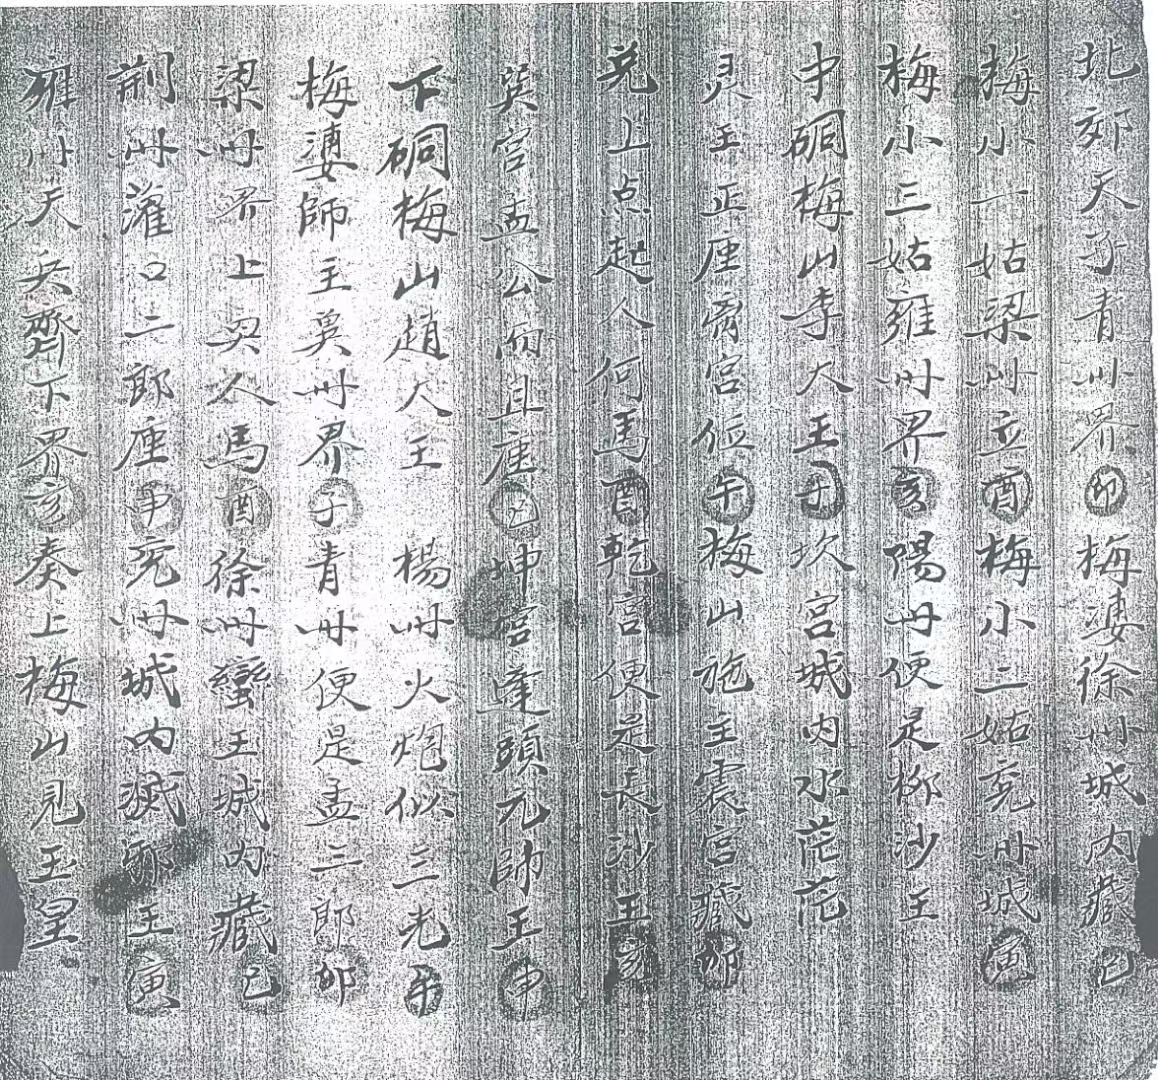 北郊天子青州界卯梅婆徐州城内藏巳
梅小一姑梁州立酉梅小二姑兖州城寅
梅小三姑雍州界亥陽州便是柳沙王
中硐梅山李大王子坎宫城内水茫茫
灵王正座离宫位午梅山施主震宫藏卯
兑上点起人何馬酉乾宫便是長沙王亥
巽宫孟公兩且座巳坤宫蓬頭元帥王申
下硐梅山趙大王 楊州火炮似三光午
梅婆師主冀州界子青州便是孟二郎卯
梁州界上兵人馬酉徐州蠻王城内藏巳
荆州灌口二郎座申兖州城内滅邪王寅
雍州天兵齊下界亥奏上梅山見玉皇